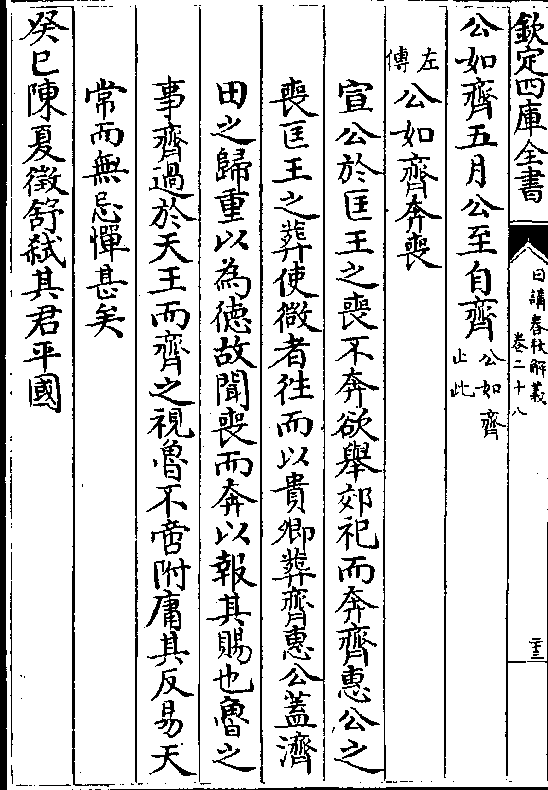 欽定四庫全書
日講春秋解義
卷二十八
二十三
公如齊五月公至自齊公如齊止此
左傳公如齊奔喪
宣公於匡王之喪不奔欲舉郊祀而奔齊惠公之
喪匡王之葬使微者往而以貴卿葬齊惠公蓋濟
田之歸重以為德故聞喪而奔以報其賜也魯之
事齊過於天王而齊之視魯不啻附庸其反易天
常而無忌憚甚矣
癸巳陳夏徵舒弑其君平國